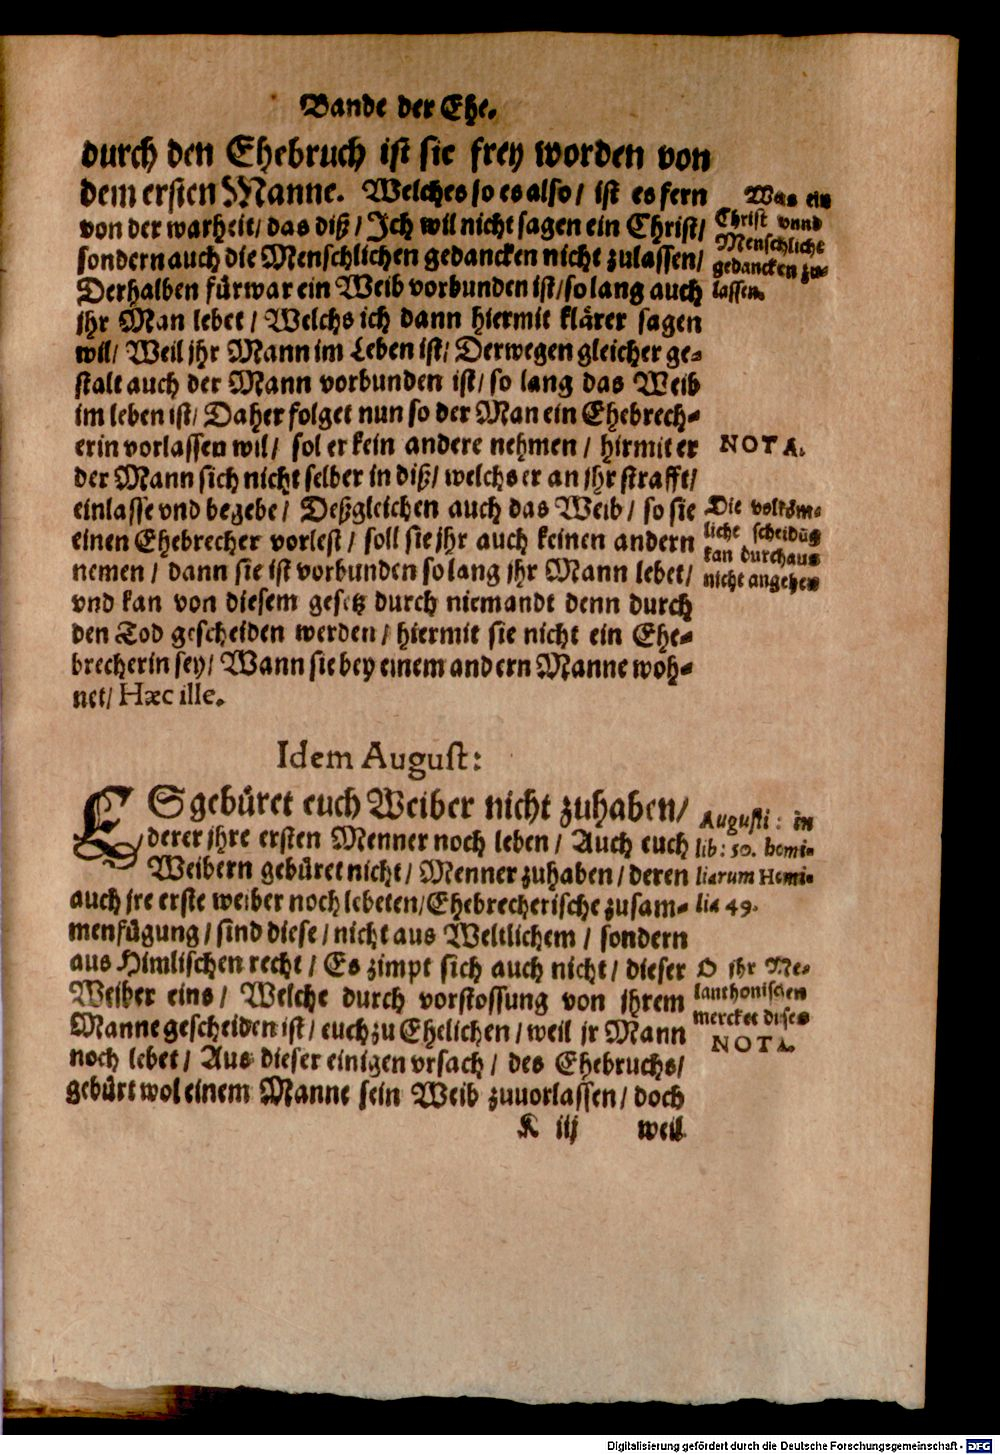 Bande der Ehe.
durch den Ehebruch ist sie frey worden von
dem ersten Manne. Welches so es also / ist es fern
von der warheit / das diß / Ich wil nicht sagen ein Christ /
sondern auch die Menschlichen gedancken nicht zulassen /
Derhalben fürwar ein Weib vorbunden ist / so lang auch
jhr Man lebet / Welchs ich dann hiermit klärer sagen
wil / Weil jhr Mann im Leben ist / Derwegen gleicher ge-
stalt auch der Mann vorbunden ist / so lang das Weib
im leben ist / Daher folget nun so der Man ein Ehebrech-
erin vorlassen wil / sol er kein andere nehmen / hirmit er
der Mann sich nicht selber in diß / welchs er an jhr strafft /
einlasse vnd begebe / Deßgleichen auch das Weib / so sie
einen Ehebrecher vorlest / soll sie jhr auch keinen andern
nemen / dann sie ist vorbunden so lang jhr Mann lebet /
vnd kan von diesem gesetz durch niemandt denn durch
den Tod gescheiden werden / hiermit sie nicht ein Ehe-
brecherin sey / Wann sie bey einem andern Manne woh-
net / Hæc ille.
Was ein
Christ vnnd
Menschliche
gedancken zu-
lassen.
NOTA.
Die volköm-
liche scheidūg
kan durchaus
nicht angehen
Idem August:
ES gebüret euch Weiber nicht zuhaben /
derer jhre ersten Menner noch leben / Auch euch
Weibern gebüret nicht / Menner zuhaben / deren
auch jre erste weiber noch lebeten / Ehebrecherische zusam-
menfügung / sind diese / nicht aus Weltlichem / sondern
aus Himlischen recht / Es zimpt sich auch nicht / dieser
Weiber eins / Welche durch vorstossung von ihrem
Manne gescheiden ist / euch zu Ehelichen / weil jr Mann
noch lebet / Aus dieser einigen vrsach / des Ehebruchs /
gebürt wol einem Manne sein Weib zuuorlassen / doch
Augusti: in
lib: 50. homi-
liarum Homi-
lia 49.
O jhr Me-
lanthonischen
mercket dises
NOTA.
K iij
weil
Digitalisierung gefördert durch die Deutsche Forschungsgemeinschaft - DFG